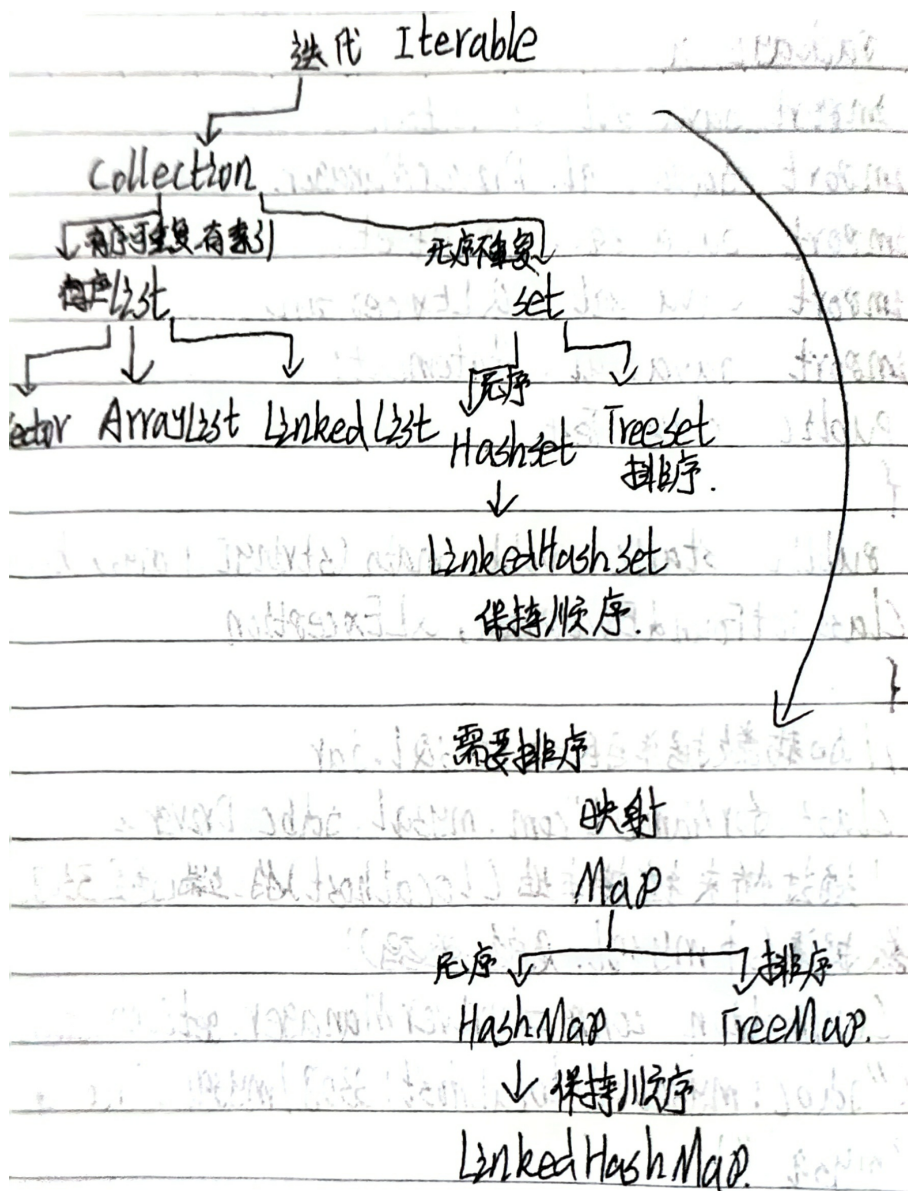 迭代 Iterable
Collection
有序可重复.有索引 无序不重复
有序List Set
ector ArrayList LinkedList 无序 HashSet TreeSet
排序.
LinkedHashSet
保持顺序.
需要排序
映射
Map
无序 排序
HashMap TreeMap.
保持顺序
LinkedHashMap.